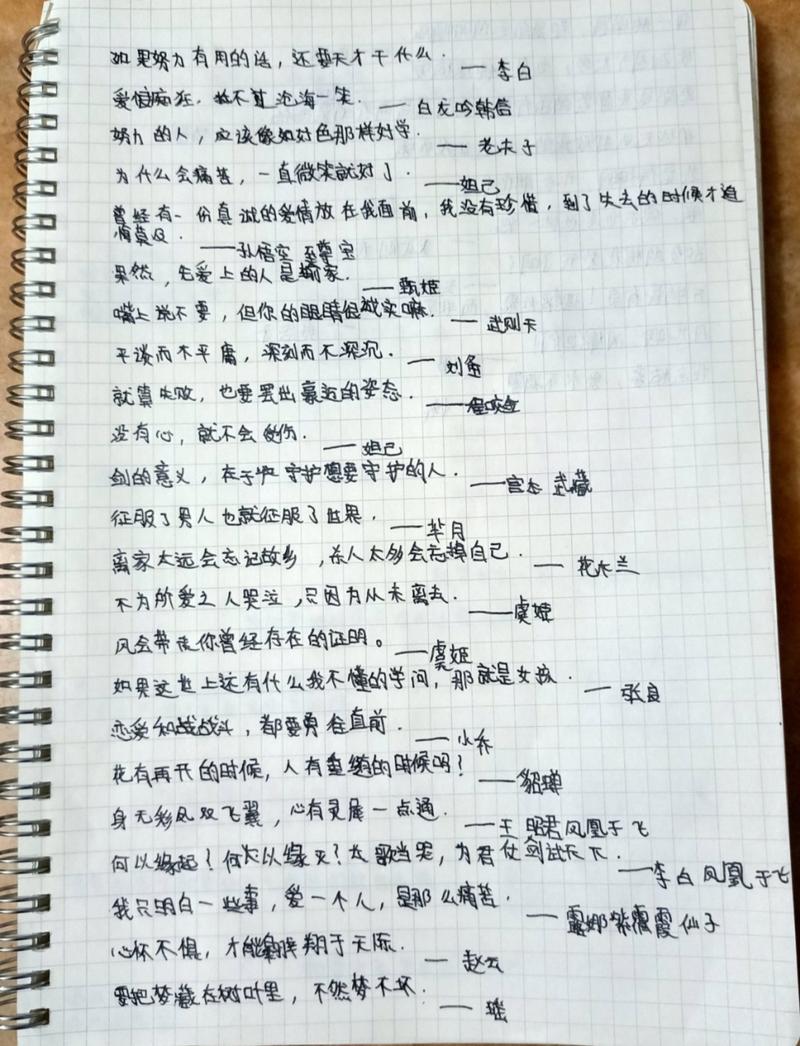 如果努力有用的话，还要天才干什么. ——李白
爱恨痴狂，敌不算沧海一笑. ——白龙吟韩信
努力的人，应该像好色那样好学. ——老夫子
为什么会痛苦，一直微笑就好了. ——妲己
曾经有一份真诚的爱情放在我面前，我没有珍惜，到了失去的时候才追
悔莫及. ——孙悟空 至尊宝
果然，先爱上的人是输家. ——甄姬
嘴上说不要，但你的眼睛很诚实嘛. ——武则天
平淡而不平庸，深刻而不深沉. ——刘备
就算失败，也要摆出豪迈的姿态. ——程咬金
没有心，就不会受伤. ——妲己
剑的意义，在于守护想要守护的人. ——宫本 武藏
征服了男人也就征服了世界. ——芈月
离家太远会忘记故乡，杀人太多会忘掉自己. ——花木兰
不为所爱之人哭泣，只因为从未离去. ——虞姬
风会带走你曾经存在的证明。 ——虞姬
如果这世上还有什么我不懂的学问，那就是女孩. ——张良
恋爱和战战斗，都要勇往直前. ——小乔
花有再开的时候，人有重逢的时候吗？ ——貂蝉
身无彩凤双飞翼，心有灵犀一点通. ——王昭君凤凰于飞
何以缘起？何以缘灭？长歌当哭，为君仗剑试天下. ——李白凤凰于飞
我只明白一些事，爱一个人，是那么痛苦. ——露娜紫霞仙子
心怀不惧，才能翱翔于天际. ——赵云
要把梦藏在树叶里，不然梦不坏. ——瑶